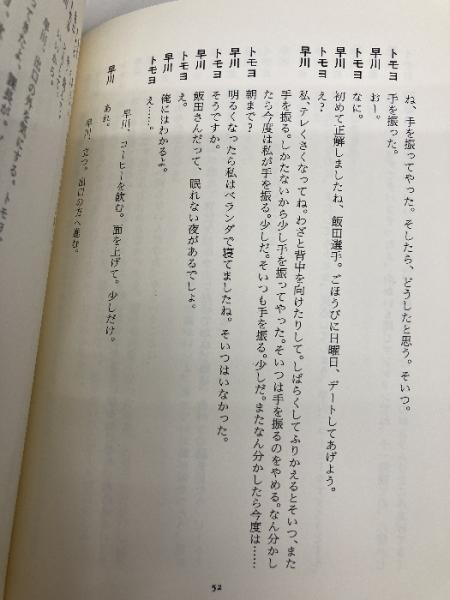 ね、手を振ってやった。そしたら、どうしたと思う。そいつ。
トモヨ 手を振った。
早川 おー。
トモヨ なに。
早川 初めて正解しましたね、飯田選手。ごほうびに日曜日、デートしてあげよう。
トモヨ え？
早川 私、テレくさくなってね。わざと背中を向けたりして。しばらくしてふりかえるとそいつ、また
手を振る。しかたないから少し手を振ってやった。そいつは手を振るのをやめる。なん分かし
たら今度は私が手を振る。少しだ。そいつも手を振る。少しだ。またなん分かしたら今度は……
トモヨ 朝まで？
早川 明るくなったら私はベランダで寝てましたね。そいつはいなかった。
トモヨ そうですか。
早川 飯田さんだって、眠れない夜があるでしょ。
トモヨ え。
早川 俺にはわかるよ。
トモヨ え……。
早川、コーヒーを飲む。面を上げて。少しだけ。
早川 あれ。
早川、立つ。出口の方へ進む。
52
早川、出口の方を気にする。トモヨ、